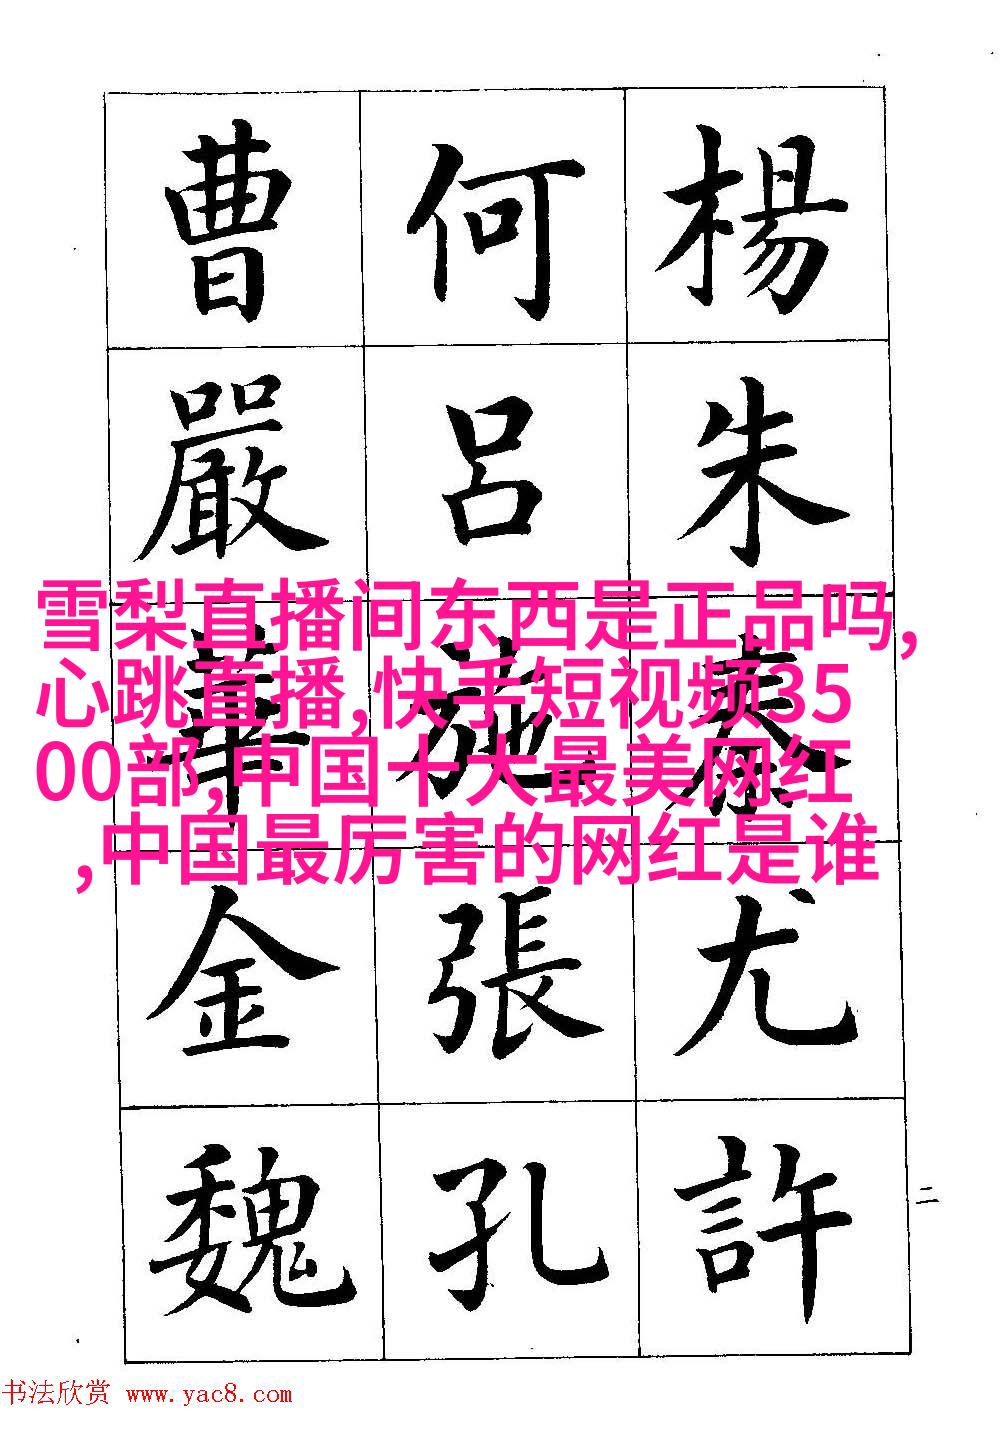 楊朱秦尤許
何呂施張孔
曹嚴華金魏
二
雪梨直播间东西是正品吗,
心跳直播,快手短视频35
00部,中国十大最美网红
,中国最厉害的网红是谁
书法欣赏 www.yac8.com